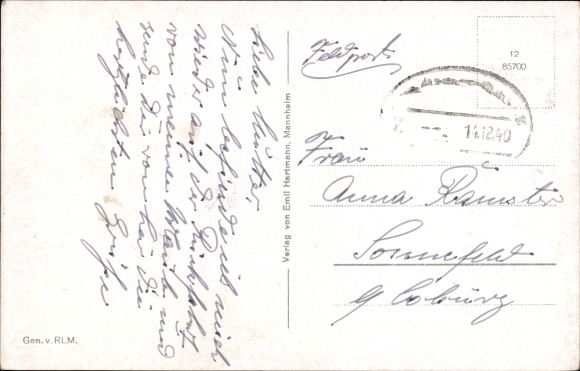 Liebe Mutter,
Nun befinde ich mich
wieder auf der Rückfahrt
von meinem Urlaub und
sende Dir von hier die
herzlichsten Grüße
Gen. v. RLM.
Verlag von Emil Hartmann, Mannheim
Feldpost
12
85700
14.12.40
Frau
Anna
Sonnefeld
b/ Coburg